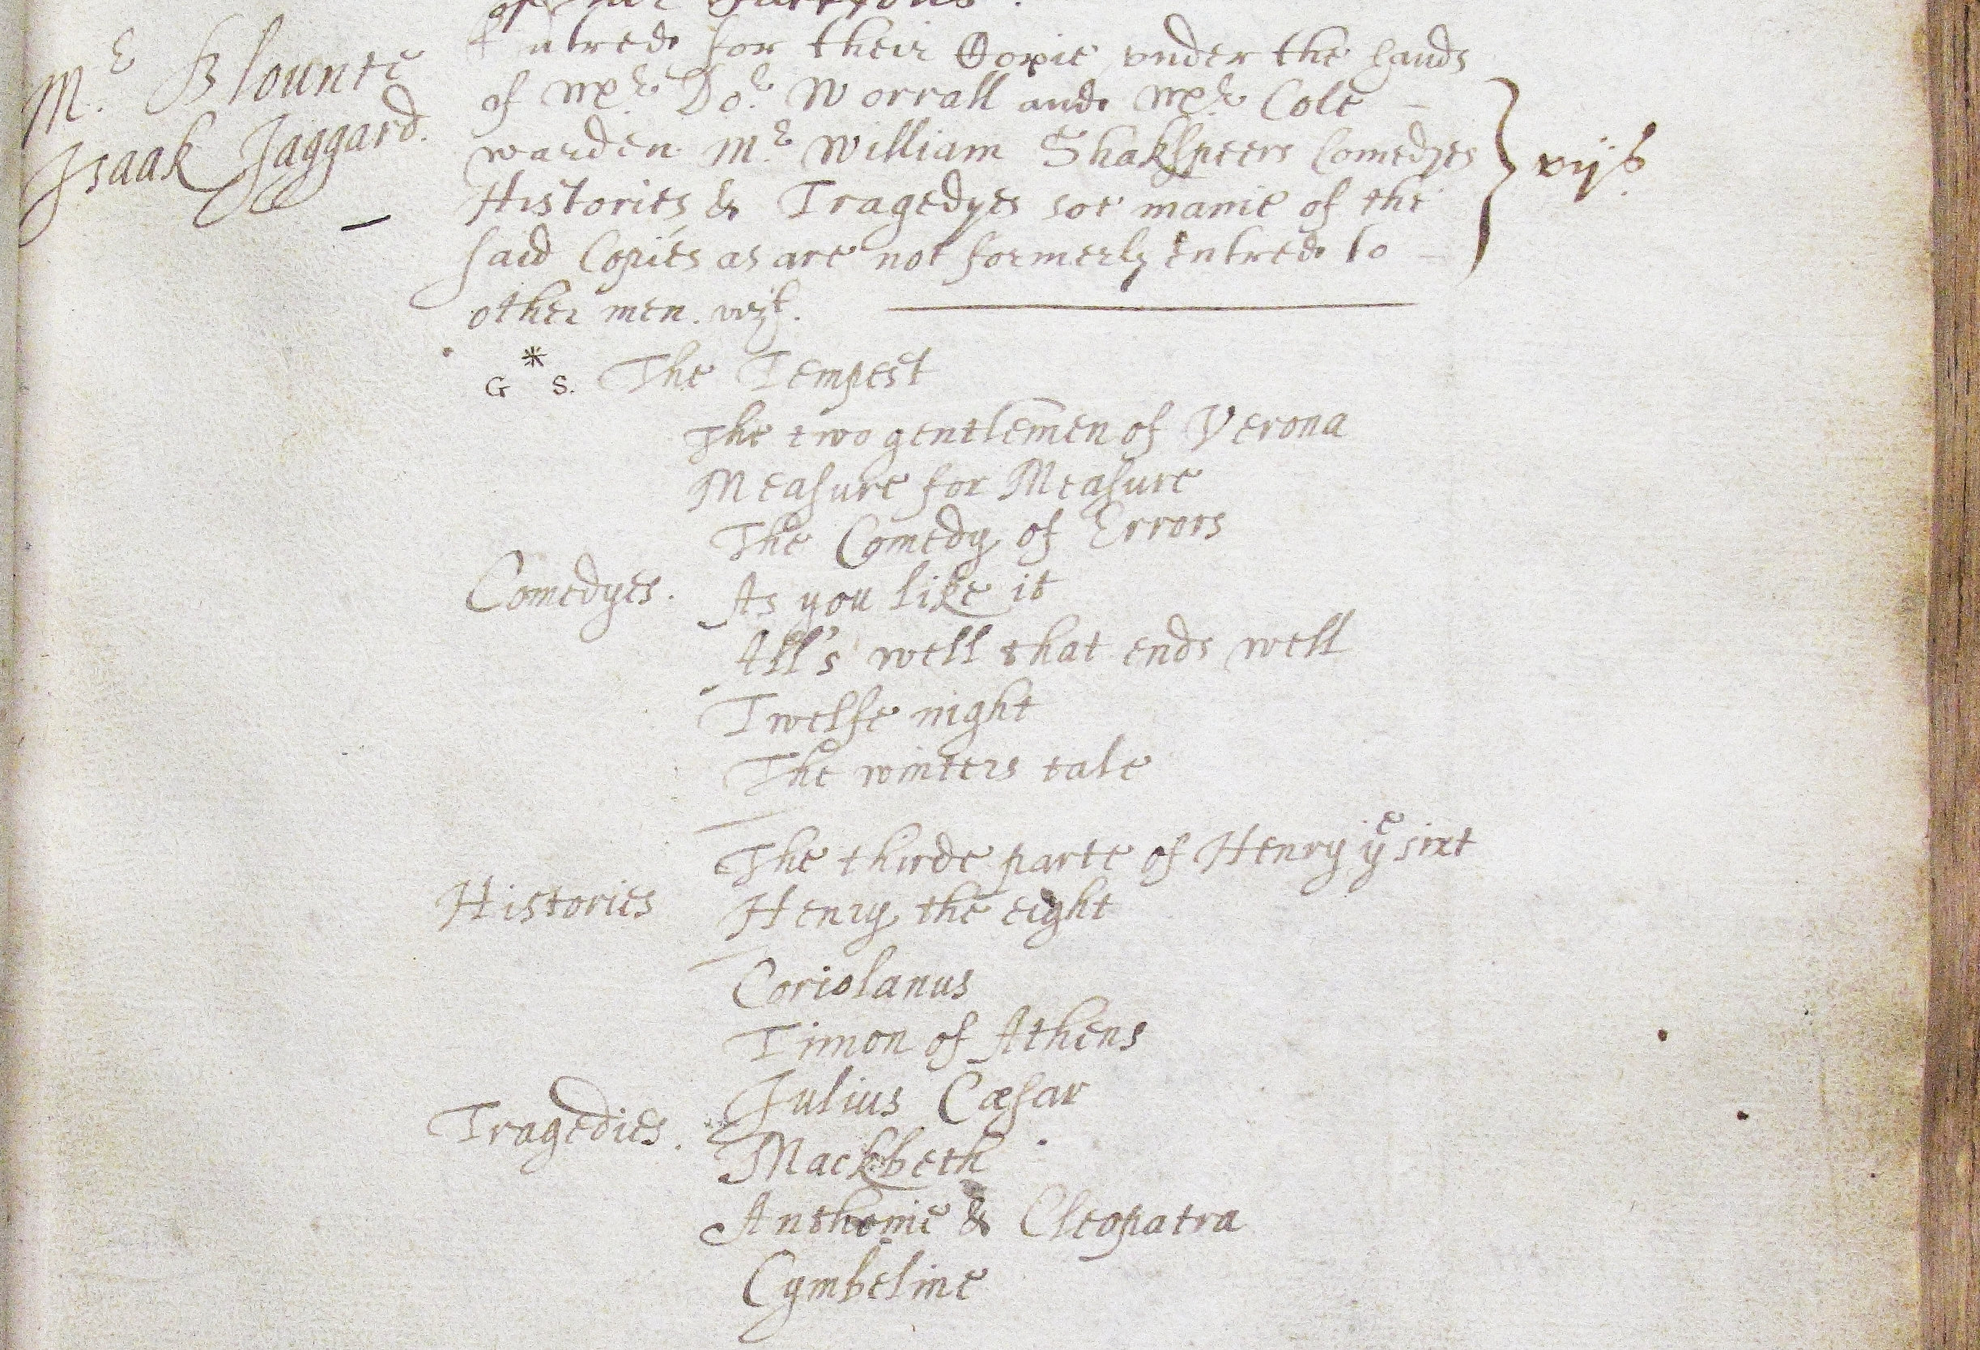 Mr. Blounte
Isaak Jaggard.
Entred for their Copie vnder the hands
of Mr. Dor. Worrall and Mr. Cole
warden Mr. William Shakspeers Comedyes
Histories & Tragedyes soe manie of the
said Copies as are not formerly entred to
other men. vizt.
vijs.
G * S. The Tempest
The two gentlemen of Verona
Measure for Measure
The Comedy of Errors
Comedyes. As you like it
All's well that ends well
Twelfe night
The winters tale
The thirde parte of Henry ye sixt
Histories Henry the eight
Coriolanus
Timon of Athens
Julius Cæsar
Tragedies. Mackbeth
Anthonie & Cleopatra
Cymbeline